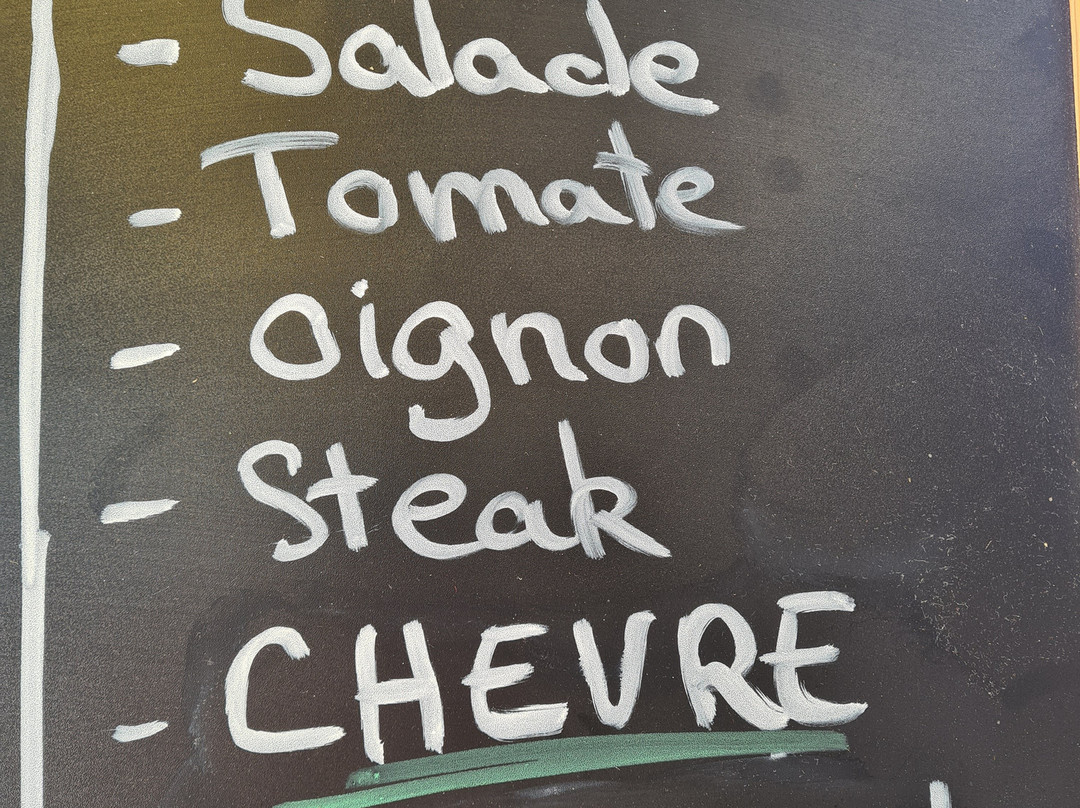 - Salade
- Tomate
- Oignon
- Steak
- CHEVRE